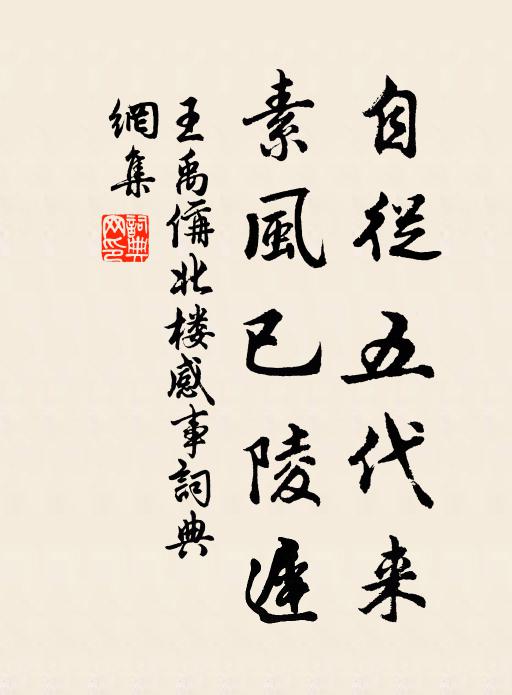 自從五代来
素風已陵遲
王禹偁北楼感事詞典
網集
詞典網印